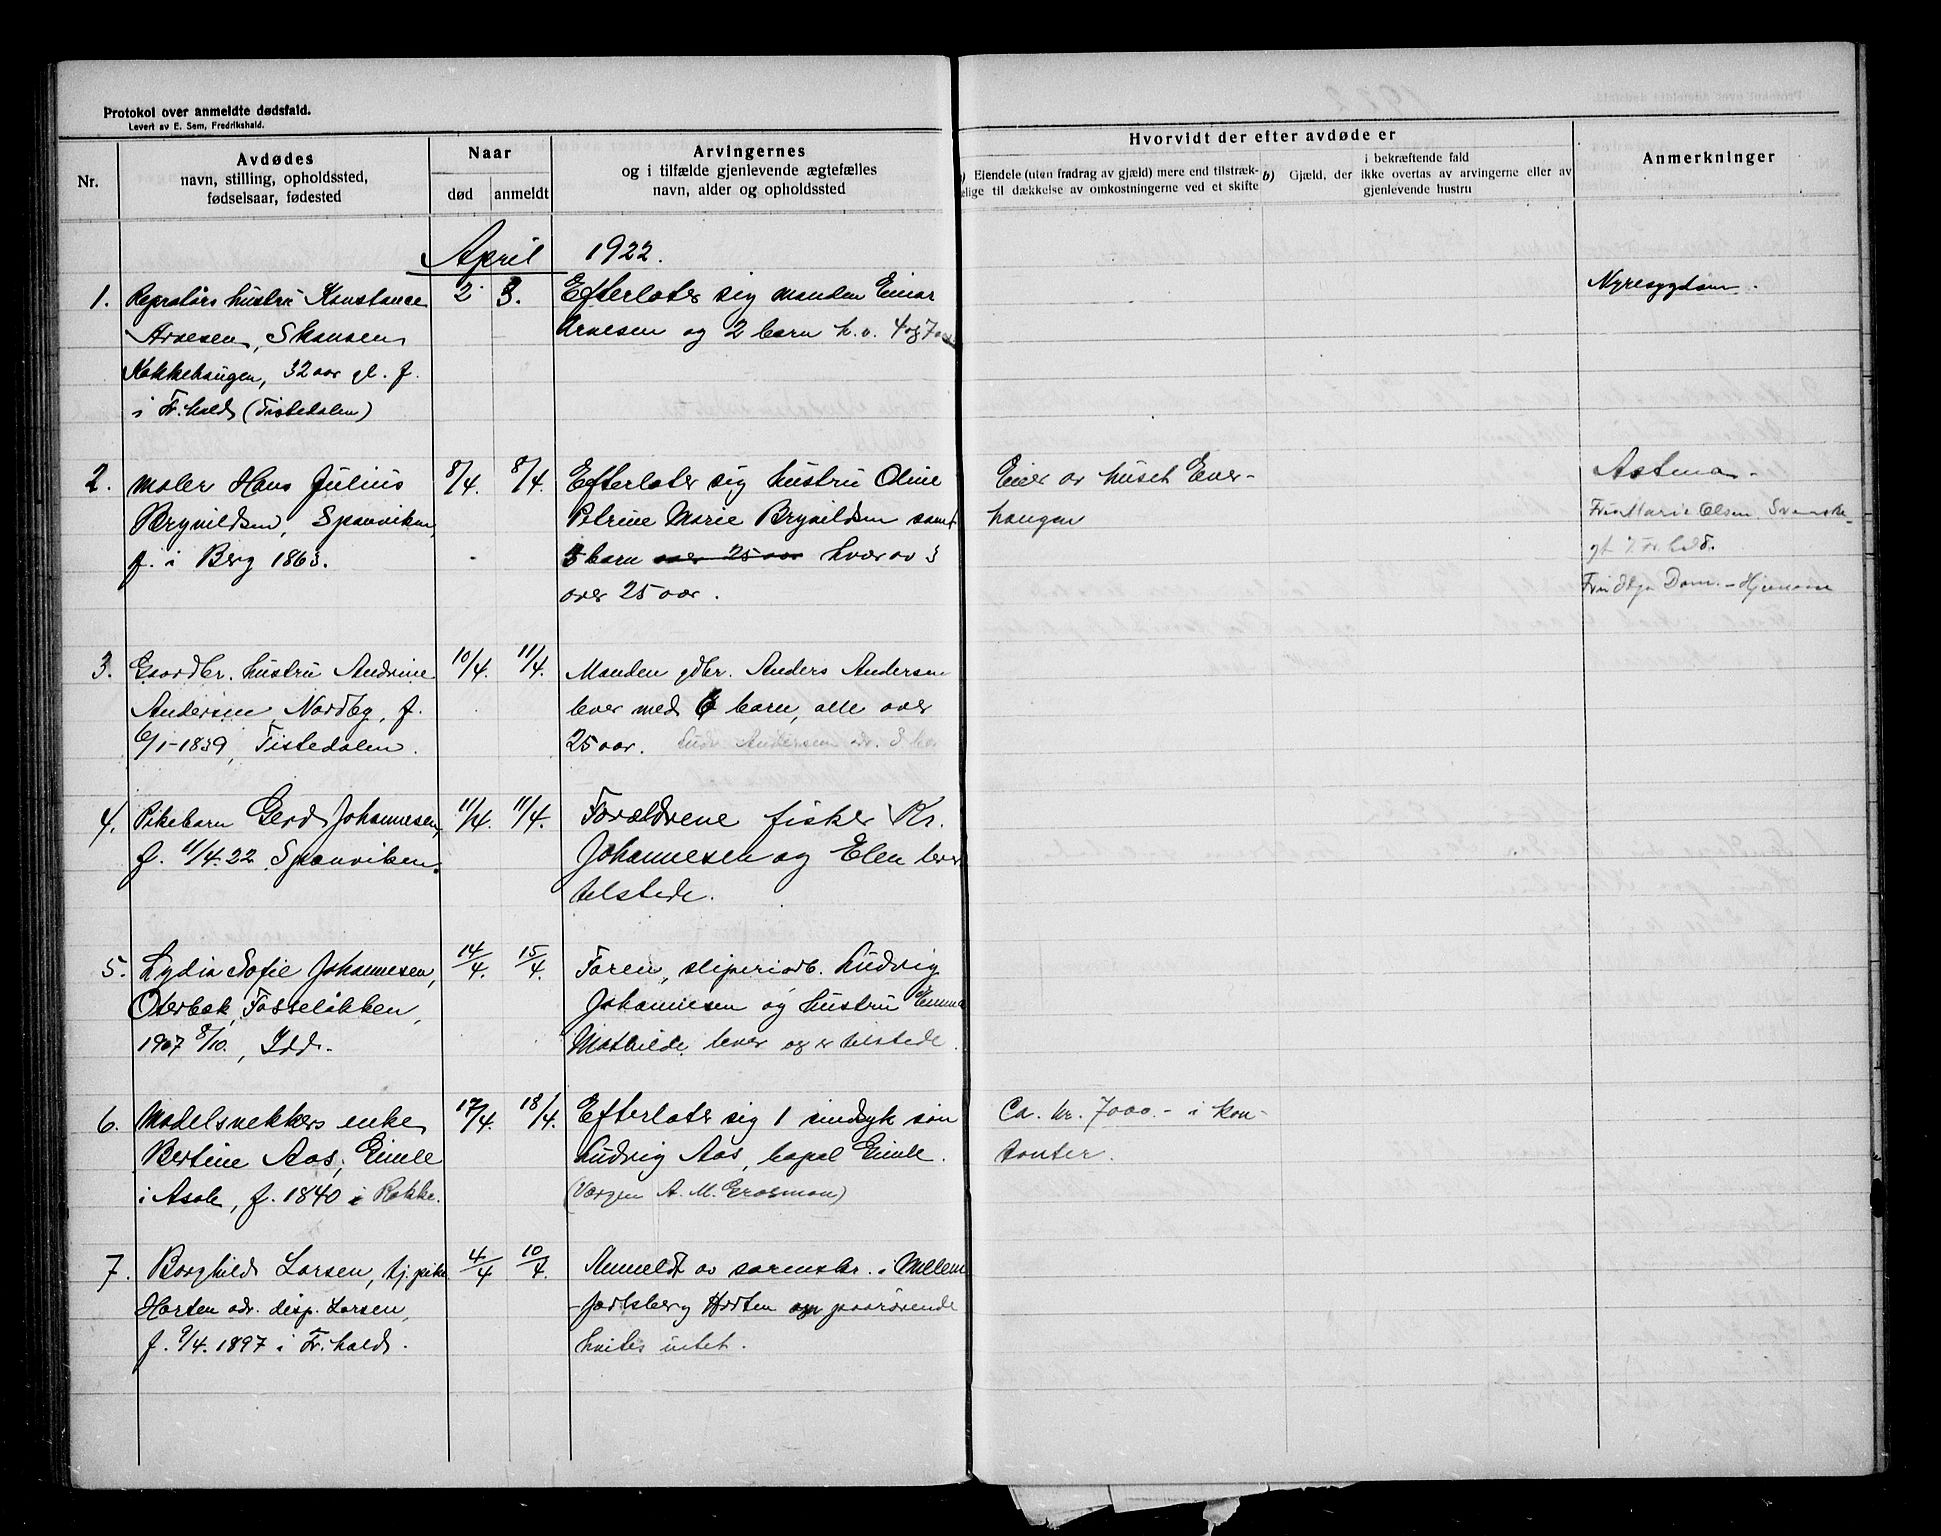 Protokol over anmeldte dødsfald.
Levert av E. Sem, Fredrikshald.
Nr.
Avdødes
navn, stilling, opholdssted,
fødselsaar, fødested
Naar
død
anmeldt
Arvingernes
og i tilfælde gjenlevende ægtefælles
navn, alder og opholdssted
Hvorvidt der efter avdøde er
a) Eiendele (uten fradrag av gjæld) mere end tilstræk-
kelige til dækkelse av omkostningerne ved et skifte
b) Gjæld, der i bekræftende fald
ikke overtas av arvingerne eller av
gjenlevende hustru
Anmerkninger
April 1922.
1. hustru Konstance
Arnesen, Skansen
Kokkehaugen, 32 aar gl. f.
i Fr.hald (Tistedalen)
2. 3.
Efterlater sig manden Einar
Arnesen og 2 barn h.v. 4 og 7 aar
Nyresygdom.
2. Maler Hans Julius
Brynildsen, Sponviken,
f. i Berg 1863.
8/4. 8/4.
Efterlater sig hustru Oline
Petrine Marie Brynildsen samt
3 barn over 25 aar hvar av 3
over 25 aar.
Eier av huset Ever-
haugen
Astma
Fru Marie Olsen Svenske-
gt 7. Fr.hald.
3. Gaardbr. hustru Andrine
Andersen, Nordby, f.
6/1-1839, Tistedalen.
10/4. 11/4.
Manden gdbr. Anders Andersen
lever med 6 barn, alle over
25 aar. Andersen adr.
4. Pikebarn Gerd Johannesen,
f. 11/4.22 Sponviken.
11/4. 11/4.
Forældrene fisker Kr.
Johannesen og Elen lever
tilstede.
5. Lydia Sofie Johannesen,
Oterbæk, Fosseløkken,
1907 8/10., Idd.
14/4. 15/4.
Faren, sliperiarb. Ludvig
Johannesen og hustru Emma
Mathilde lever og er tilstede.
6. Modelsnekkers enke
Bertine Aas, Eimle
i Asak, f. 1840 i Rokke.
17/4. 18/4.
Efterlater sig 1 sindsyk søn
Ludvig Aas, kapel Eimle.
(Værgen A. M. Grosman)
Ca. kr. 7000.- i kon-
tanter.
7. Borghild Larsen, tj.pike
Horten adr. disp. Larsen,
f. 9/4. 1897 i Fr.hald.
4/4 10/4.
Anmeldt av sorenskr. i Mellem
Jarlsberg Horten om paarørende
hvites intet.